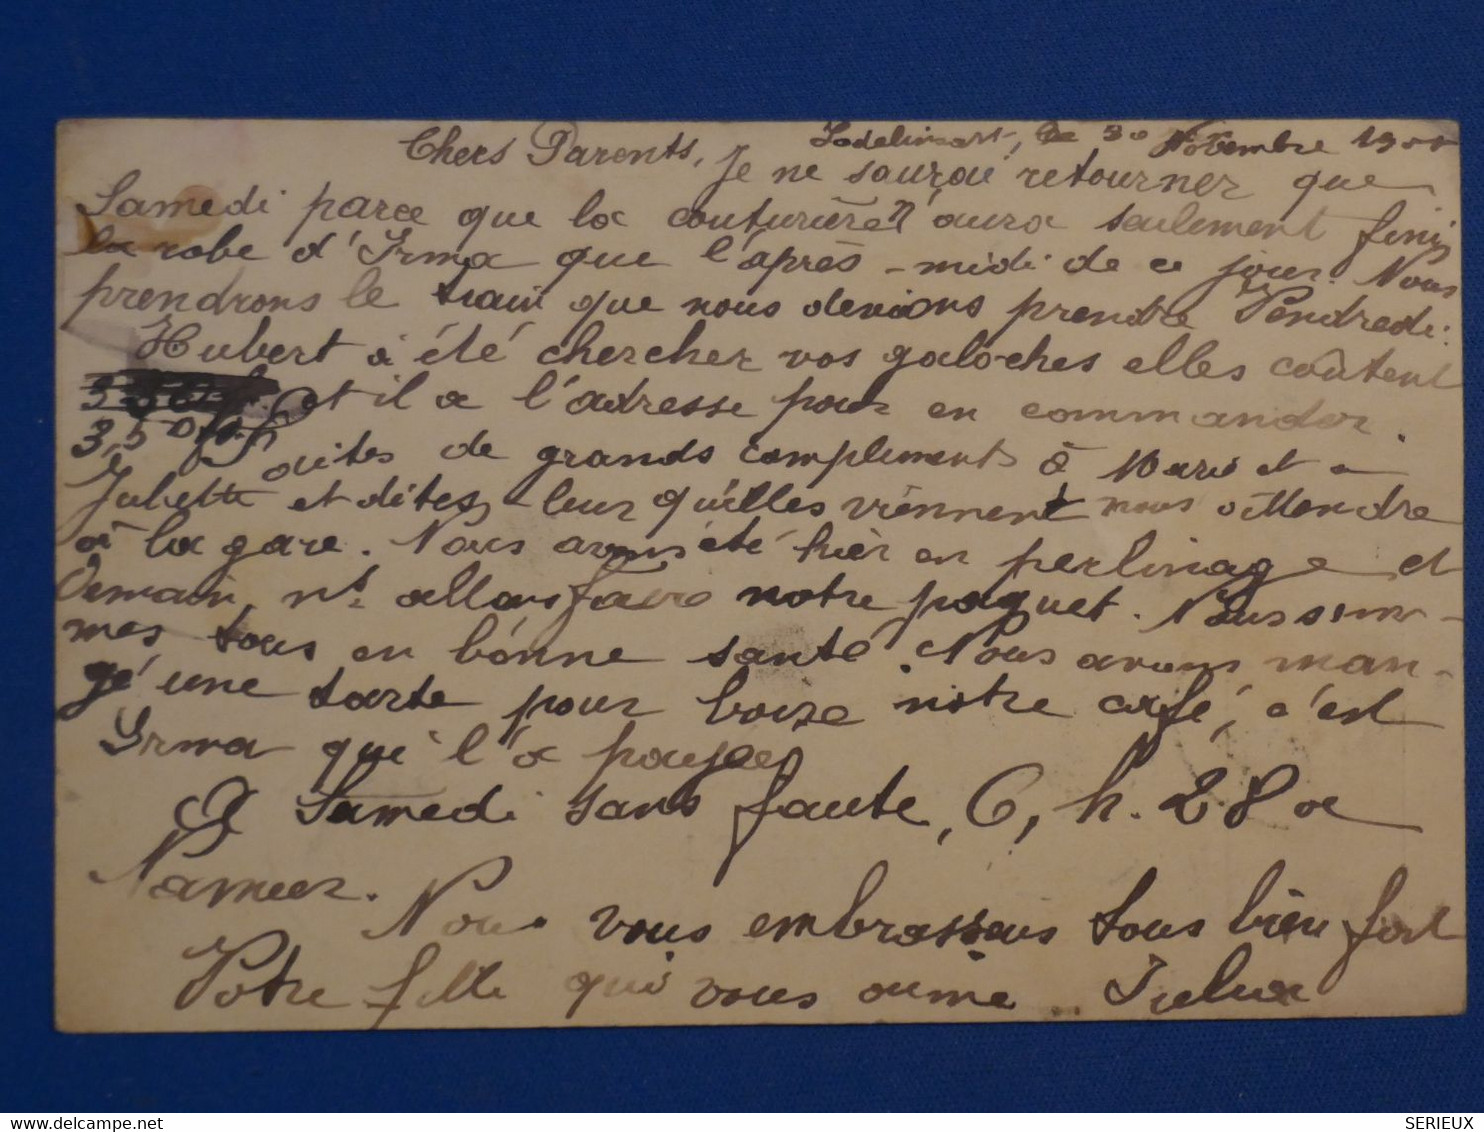 Jodelinsart, le 30 Novembre 1900
Chers Parents, Je ne saurai retourner que
Samedi parce que la couturière n'aura seulement finis
la robe d'Irma que l'après-midi de ce jour. Nous
prendrons le train que nous devions prendre Vendredi.
Hubert a été chercher vos galoches elles coûtent
3,50 et il a l'adresse pour en commander.
3,50
dites de grands compliments à Marie et a
Juliette et dites-leur qu'elles viennent nous attendre
à la gare. Nous avons été hier en perlinage et
Demain, ns. allons faire notre paquet. Nous som-
mes tous en bonne santé. Nous avons man-
gé une tarte pour boire notre café, c'est
Irma qui l'a payée
A Samedi sans faute, 6, h. 28 a
Namur.
Nous vous embrassons tous bien fort
Votre fille qui vous aime
SERIEUX